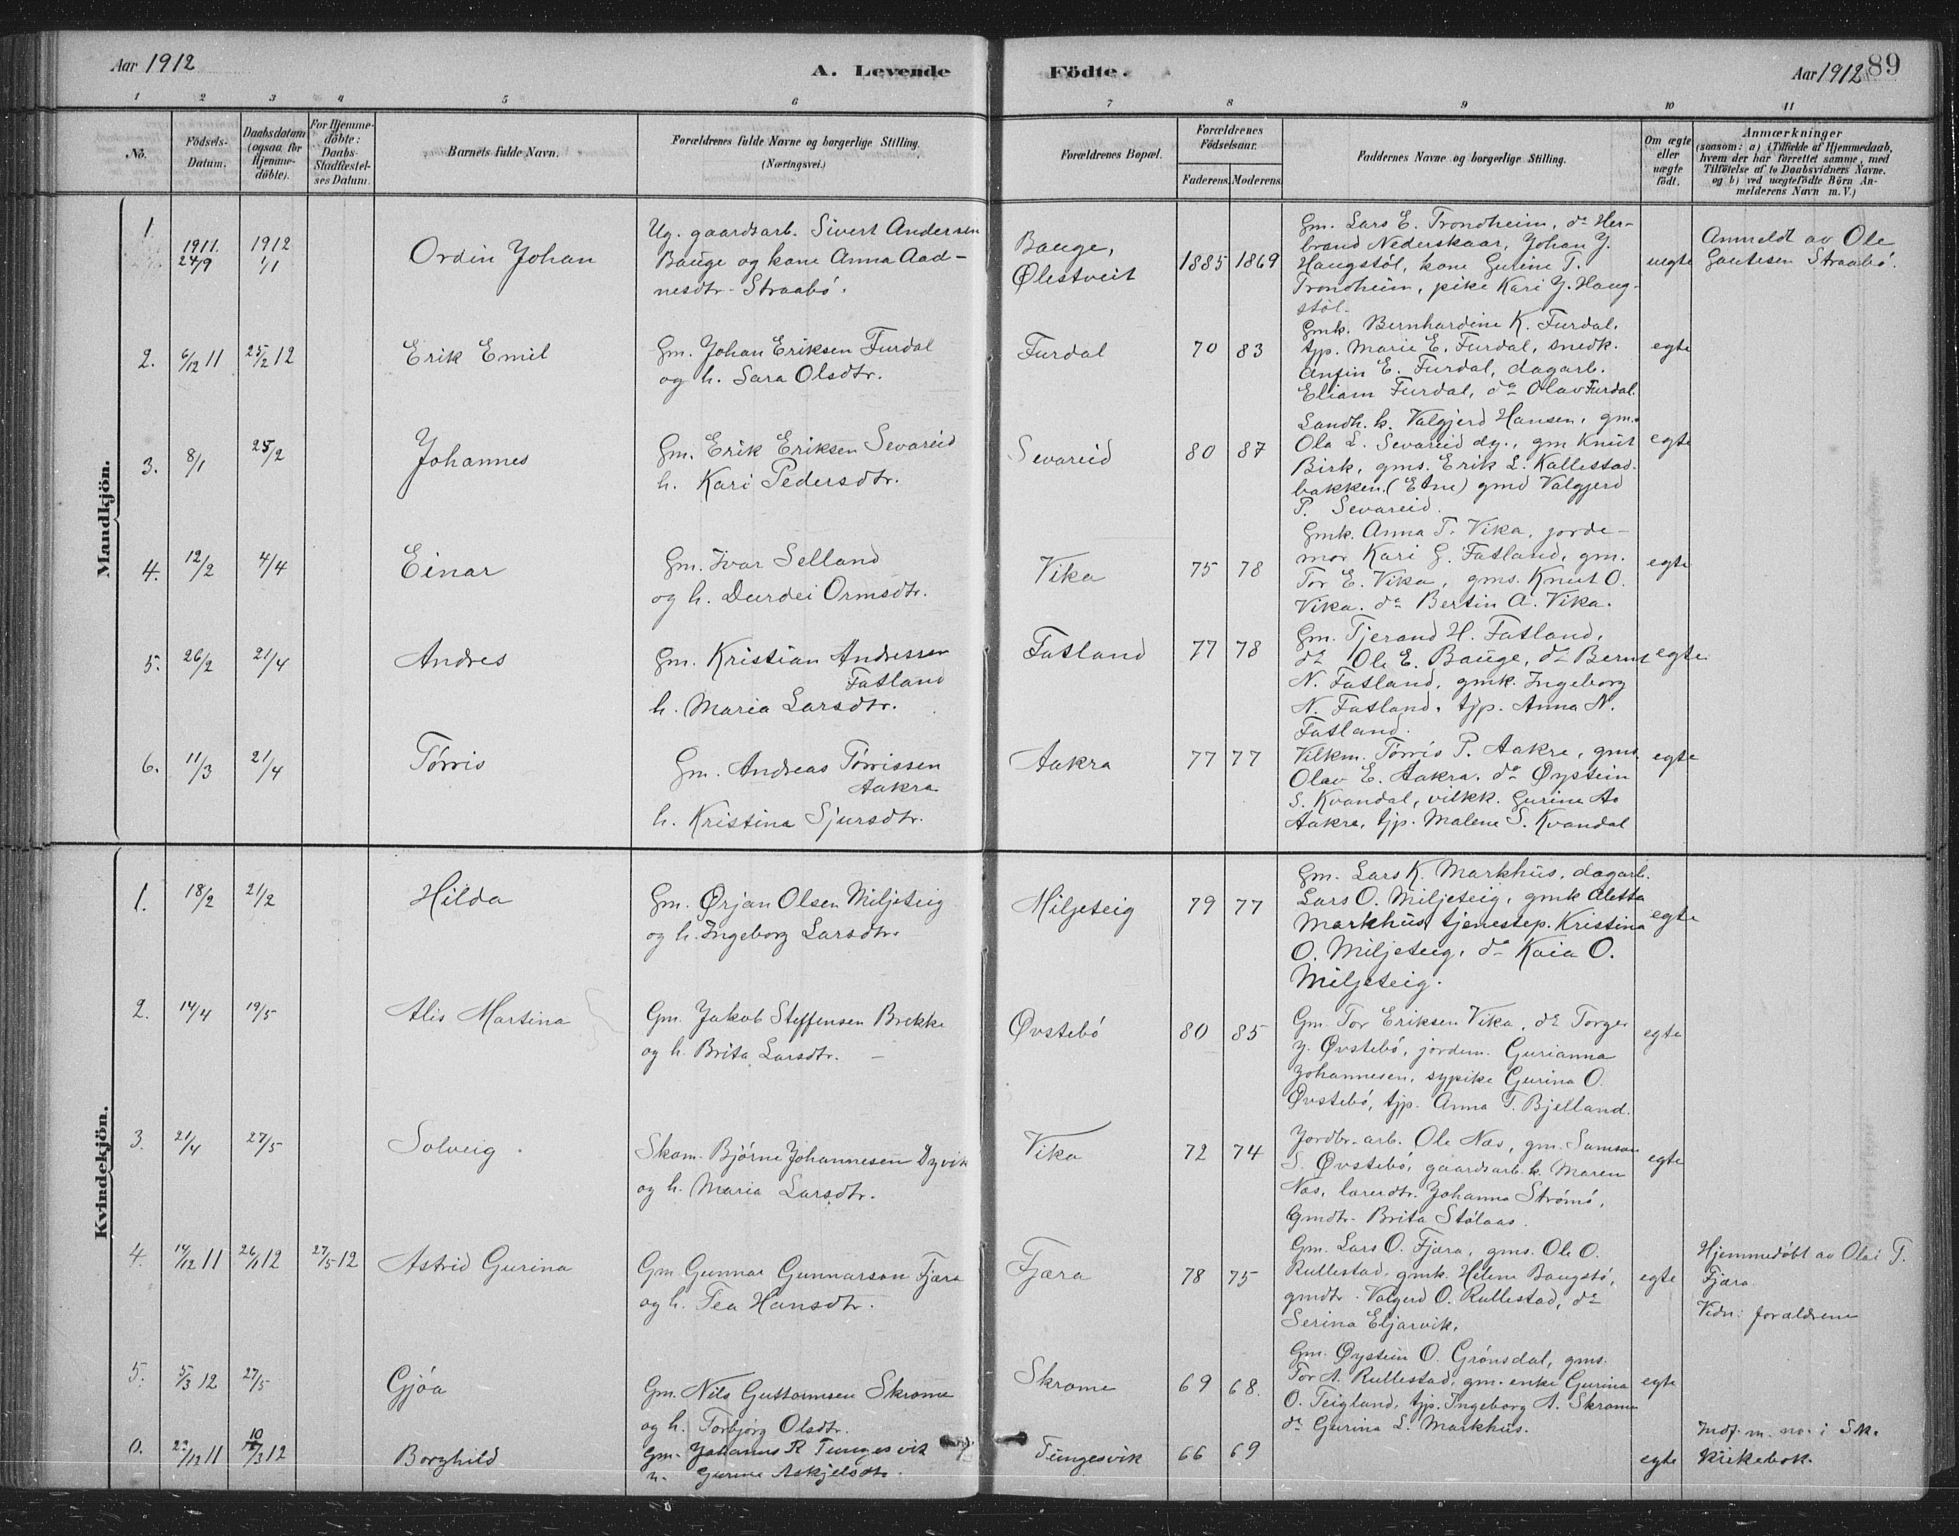 Aar 1912
A. Levende
Födte.
Aar 1912
89
1 2 3 4 5 6 7 8 9 10 11
No.
Födsels-
Datum.
Daabsdatum
(ogsaa for
Hjemme-
döbte).
For Hjemme-
döbte:
Daabs-
Stadfæstel-
ses Datum.
Barnets fulde Navn.
Forældrenes fulde Navne og borgerlige Stilling.
(Næringsvei.)
Forældrenes Bopæl.
Forældrenes
Födselsaar.
Faderens. Moderens.
Faddernes Navne og borgerlige Stilling.
Om ægte
eller
uægte
födt.
Anmærkninger
(saasom: a) i Tilfælde af Hjemmedaab,
hvem der har forrettet samme, med
Tilföielse af to Daabsvidners Navne.
og b) ved uægtefödte Börn An-
melderens Navn m. V.)
Mandkjön.
1
1911.
24/9
1912
1/1
Ordin Johan
Ug. gaardsarb. Sivert Andersen
Bauge og kone Anna Aad-
nesdtr. Straabö.
Bauge,
Ølestveit
1885 1869
Gm. Lars E. Trondheim, do Her-
brand Nederskaar, Johan J.
Haugstöl, kone Gurine T.
Trondheim, pike Kari J. Haug-
stöl.
uegte
Anmeldt av Ole
Gautesen Straabö.
2.
6/12 11
25/2 12
Erik Emil
Gm. Johan Eriksen Furdal
og h. Sara Olsdtr.
Furdal
70 83
Gmk. Bernhardine K. Furdal.
tjp. Marie E. Furdal, snedk.
Anfin E. Furdal, dagarb.
Eliam Furdal, do Olav Furdal.
egte
3.
8/1
25/2
Johannes
Gm. Erik Eriksen Sevareid
h. Kari Pedersdtr.
Sevareid
80 87
Landh. k. Valgjerd Hansen, gm.
Ola L. Sevareid dy., gm Knut
Birk, gms. Erik L. Kallestad-
bakken. (Etne) gmd Valgjerd
P. Sevareid.
egte
4.
12/2
4/4
Einar
Gm. Ivar Selland
og h. Durdei Ormsdtr.
Vika
75 78
Gmk. Anna T. Vika, jorde-
mor Kari G. Fatland, gm.
Tor E. Vika, gms. Knut O.
Vika. do Bertin A. Vika.
egte
5.
26/2
21/4
Andres
Gm. Kristian Andressen
Fatland
h. Maria Larsdtr.
Fatland
77 78
Gm. Tjerand H. Fatland,
do Ole E. Bauge, do Bernt
N. Fatland, gmk. Ingeborg
N. Fatland, tjp. Anna N.
Fatland.
egte
6.
11/3
21/4
Tørris
Gm. Andreas Tørrissen
Aakra
h. Kristina Sjursdtr.
Aakra
77 77
Vilkm. Tørris P. Aakre, gms.
Olav E. Aakra. do Øystein
S. Kvandal, vilkk. Gurina A.
Aakra, tjp. Malene S. Kvandal
egte
Kvindekjön.
1.
18/2
21/2
Hilda
Gm. Ørjan Olsen Miljeteig
og h. Ingeborg Larsdtr.
Miljeteig
79 77
Gm. Lars K. Markhus, dagarb.
Lars O. Miljeteig, gmk Aletta
Markhus, tjenestep. Kristina
O. Miljeteig, do Kaia O.
Miljeteig.
egte
2.
14/4
19/5
Alis Martina
Gm. Jakob Steffensen Brekke
og h. Brita Larsdtr. –
Øvstebö
80 85
Gm. Tor Eriksen Vika, do Torger
J. Øvstebö, jordem. Gurianna
Johannesen, sypike Gurina O.
Øvstebö, tjp. Anna T. Bjelland.
egte
3.
21/4
27/5
Solveig
Skom. Bjørne Johannesen Dyvik
og h. Maria Larsdtr.
Vika
72 74
Jordbr. arb. Ole Næs, gm. Samson
S. Øvstebö, gaardsarb. k. Maren
Næs, lærerdtr. Johanna Strömö,
gmdtr. Brita Stölaas.
egte
4.
14/12 11
26/1 12
27/5 12
Astrid Gurina
Gm Gunnar Gunnarson Fjæra
og h. Tea Hansdtr.
Fjæra
78 75
Gm. Lars O. Fjæra, gms. Ole O.
Rullestad, gmk. Helene Baugstö,
gmdtr. Valgerd O. Rullestad, do
Serina Eljarvik.
egte
Hjemmedøbt av Olai T.
Fjæra.
Vidn: forældrene
5.
5/3 12
27/5
Gjöa
Gm. Nils Guttormsen Skrome
og h. Torbjørg Olsdtr.
Skrome
69 68.
Gm. Øystein O. Grönsdal, gms.
Tor A. Rullestad, gm. enke Gurina
O. Teigland, tjp. Ingeborg A. Skrome
do Gurina L. Markhus.
egte
0.
22/12 11
10/3 12
Borghild
Gm. Johannes R Tungesvik
h. Gurine Askjelsdtr.
Tungesvik
66 69
egte
Indf. m. no. i Sk.
kirkebok.